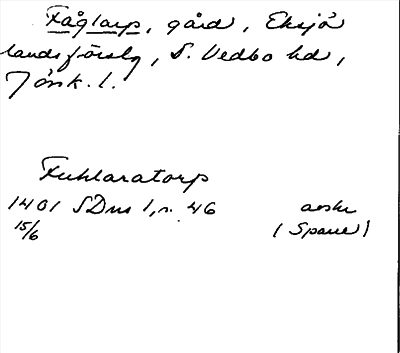 Fåglarp, gård, Eksjö
landsförslg, S. Vedbo hd,
Jönk. l.
Fuhlaratorp
1401 SDns 1, n. 46 avskr
15/6 (Spane)